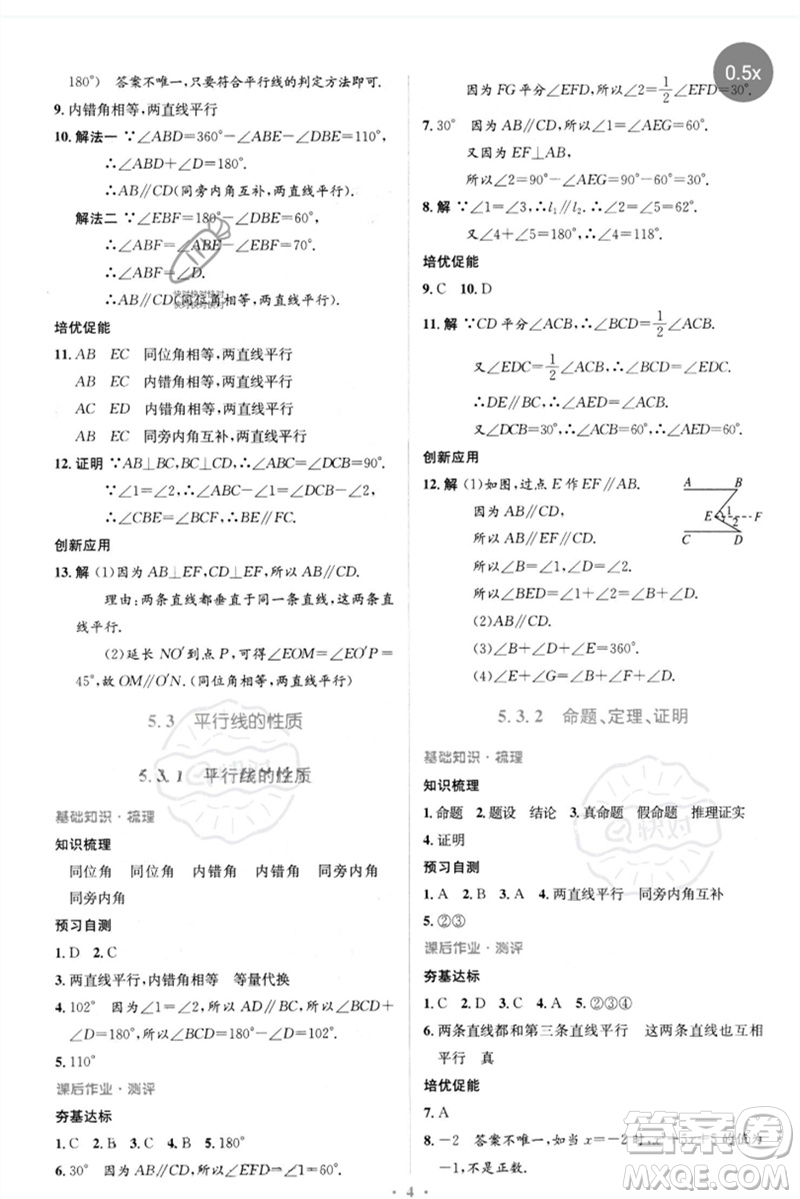 180°) 答案不唯一,只要符合平行线的判定方法即可.
9. 内错角相等,两直线平行
10. 解法一 ∵∠ABD=360°−∠ABE−∠DBE=110°,
∴∠ABD+∠D=180°.
∴AB∥CD(同旁内角互补,两直线平行).
解法二 ∵∠EBF=180°−∠DBE=60°,
∴∠ABF=∠ABE−∠EBF=70°.
∴∠ABF=∠D.
∴AB∥CD(同位角相等,两直线平行).
培优促能
11. AB EC 同位角相等,两直线平行
AB EC 内错角相等,两直线平行
AC ED 内错角相等,两直线平行
AB EC 同旁内角互补,两直线平行
12. 证明 ∵AB⊥BC,BC⊥CD,∴∠ABC=∠DCB=90°.
∵∠1=∠2,∴∠ABC−∠1=∠DCB−∠2,
∴∠CBE=∠BCF,∴BE∥FC.
创新应用
13. 解 (1)因为AB⊥EF,CD⊥EF,所以AB∥CD.
理由:两条直线都垂直于同一条直线,这两条直线平行.
(2)延长NO′到点P,可得∠EOM=∠EO′P=
45°,故OM∥O′N.(同位角相等,两直线平行)
5.3 平行线的性质
5.3.1 平行线的性质
基础知识·梳理
知识梳理
同位角 同位角 内错角 内错角 同旁内角
同旁内角
预习自测
1. D 2. C
3. 两直线平行,内错角相等 等量代换
4. 102° 因为∠1=∠2,所以AD∥BC,所以∠BCD+
∠D=180°,所以∠BCD=180°−∠D=102°.
5. 110°
课后作业·测评
夯基达标
1. C 2. C 3. B 4. A 5. 180°
6. 30° 因为AB∥CD,所以∠EFD=∠1=60°.
因为FG平分∠EFD,所以∠2=1/2∠EFD=30°.
7. 30° 因为AB∥CD,所以∠1=∠AEG=60°.
又因为EF⊥AB,
所以∠2=90°−∠AEG=90°−60°=30°.
8. 解 ∵∠1=∠3,∴l₁∥l₂.∴∠2=∠5=62°.
又∠4+∠5=180°,∴∠4=118°.
培优促能
9. C 10. D
11. 解 ∵CD平分∠ACB,∴∠BCD=1/2∠ACB.
又∠EDC=1/2∠ACB,∴∠BCD=∠EDC.
∴DE∥BC.∴∠AED=∠ACB.
又∠DCB=30°,∴∠ACB=60°,∴∠AED=60°.
创新应用
12. 解 (1)如图,过点E作EF∥AB.
因为AB∥CD,
所以EF∥CD.
所以∠B=∠1,∠D=∠2.
所以∠BED=∠1+∠2=∠B+∠D.
(2)AB∥CD.
(3)∠B+∠D+∠E=360°.
(4)∠B=∠D+∠E.
A B
E 1 F
2
C D
5.3.2 命题、定理、证明
基础知识·梳理
知识梳理
1. 命题 2. 题设 结论 3. 真命题 假命题 推理证实
4. 证明
预习自测
1. A 2. B 3. A 4. 两直线平行 同旁内角互补
5. ②③
课后作业·测评
夯基达标
1. C 2. C 3. D 4. A 5. ②③④
6. 两条直线都和第三条直线平行 这两条直线也互相
平行 真
培优促能
7. A
8. −2 答案不唯一,如当x=−2时,x²+5x+5的值为
−1,不是正数.
4
0.5x
快对
答案圈
MXQE.COM